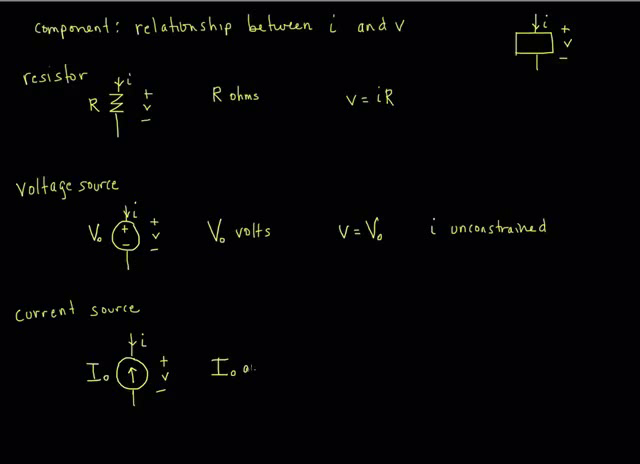 component: relationship between i and v
i + v −
resistor
R i + v − R ohms v = iR
Voltage source
V₀ + − i + v − V₀ volts v = V₀ i unconstrained
current source
I₀ i + v − I₀ a